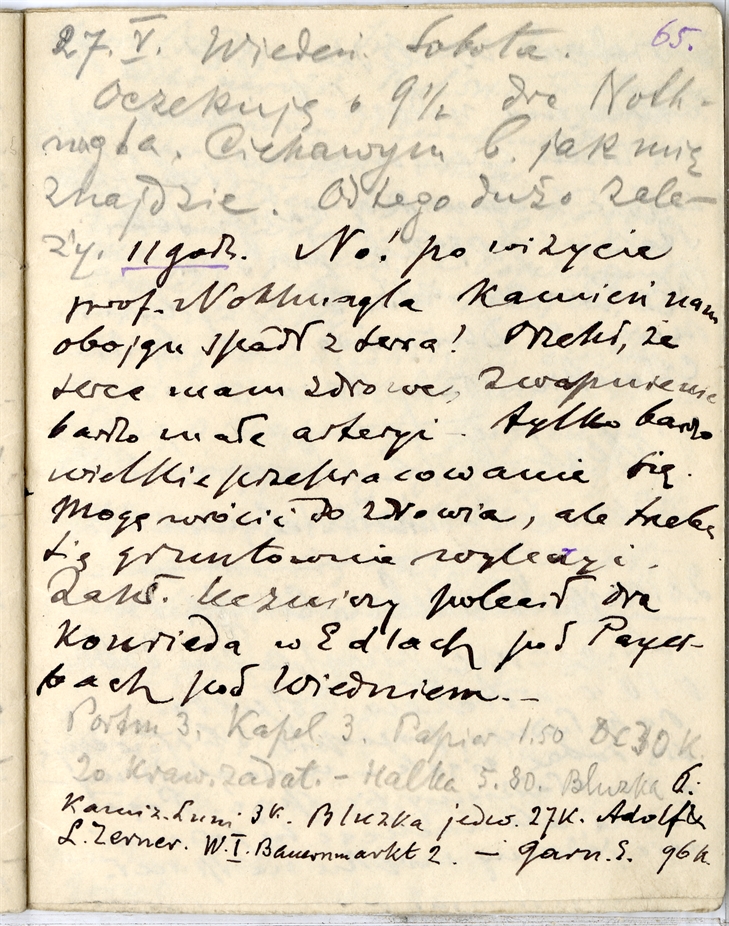 65.
27. V. Wiedeń. Sobota.
Oczekuję o 9½ dra Noth-
nagla. Ciekawym b. jak mię
znajdzie. Od tego dużo zale-
ży. 11 godz. No! po wizycie
prof. Nothnagla kamień nam
obojgu spadł z serca! Orzekł, że
serce mam zdrowe, zwapnienie
bardzo małe arteryi – tylko bardzo
wielkie przepracowanie się.
Mogę wrócić do zdrowia, ale trzeba
się gruntownie wyleczyć.
Zakł. leczniczy polecił dra
Konrieda w Edlach pod Payer-
bach pod Wiedniem. –
Portm 3. Kapel 3. Papier 1.50 30 K.
20 Kraw. zadat. – Halka 5.80. Bluzka 6.
3K. Bluzka jedw. 27K. Adolf
L. Zerner. W. I. Bauernmarkt 2. – Garn. E. 96 K.